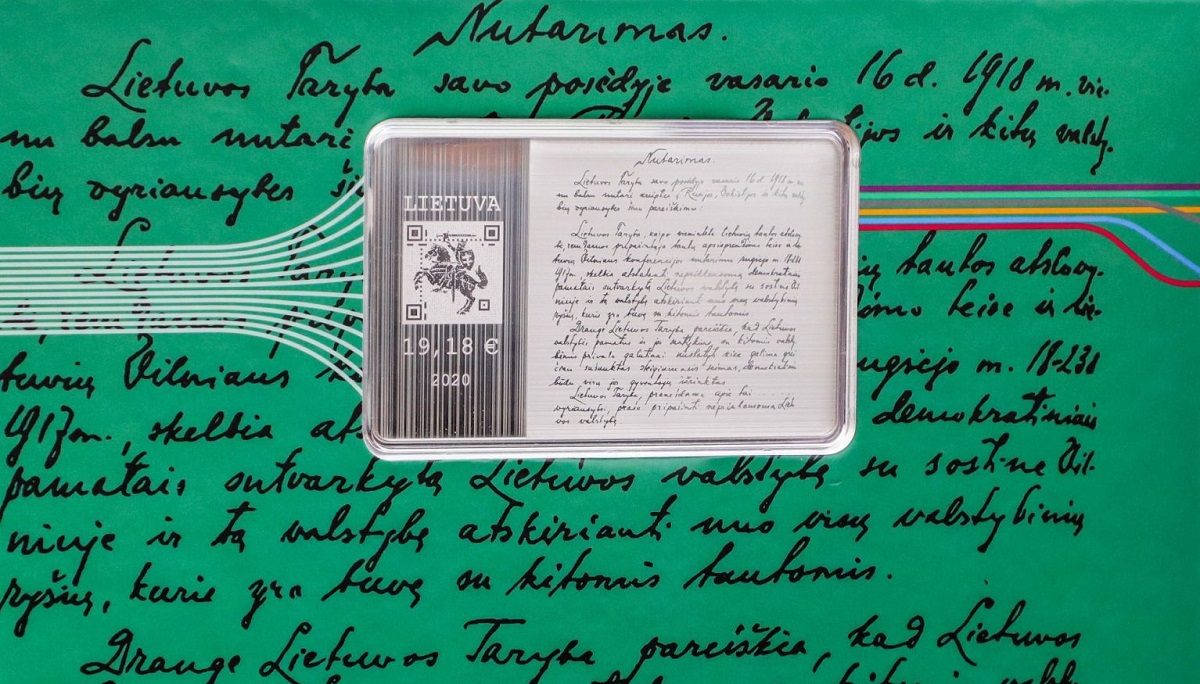 Nutarimas.
Lietuvos Taryba savo posėdyje vasario 16 d. 1918 m. vie-
nu balsu nutarė ir kitų valsty-
bių vyriausybes
Lietuvos Taryba tautos atstovy-
teise ir Lie-
tuvių Vilniaus rugsėjo m. 18-23 d
1917 m., skelbia demokratiniais
pamatais sutvarkytą Lietuvos valstybę su sostine Vil-
niuje ir tą valstybę atskirianti nuo visų valstybinių
ryšių, kurie yra buvę su kitomis tautomis.
Drauge Lietuvos Taryba pareiškia, kad Lietuvos
LIETUVA
19,18 €
2020
Nutarimas.
Lietuvos Taryba savo posėdyje vasario 16 d. 1918 m. vie-
nu balsu nutarė kreiptis į Rusijos, Vokietijos ir kitų valsty-
bių vyriausybes šiuo pareiškimu:
Lietuvos Taryba, kaipo vienintelė lietuvių tautos atstovy-
bė, remdamos pripažintąja tautų apsisprendimo teise ir Lie-
tuvių Vilniaus konferencijos nutarimu rugsėjo m. 18-23 d
1917 m., skelbia atstatanti nepriklausomą demokratiniais
pamatais sutvarkytą Lietuvos valstybę su sostine Vil-
niuje ir tą valstybę atskirianti nuo visų valstybinių
ryšių, kurie yra buvę su kitomis tautomis.
Drauge Lietuvos Taryba pareiškia, kad Lietuvos
valstybės pamatus ir jos santykius su kitomis valsty-
bėmis privalo galutinai nustatyti kiek galima grei-
čiau sušauktas steigiamasis seimas, demokratiniu
būdu visų jo gyventojų išrinktas.
Lietuvos Taryba, pranešdama apie tai
vyriausybei, prašo pripažinti nepriklausomą Lietu-
vos valstybę.